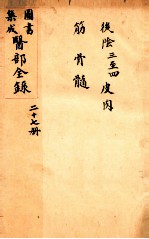 後陰三至四 皮肉
筋骨髓
圖書
集成
醫部全錄
二十七册